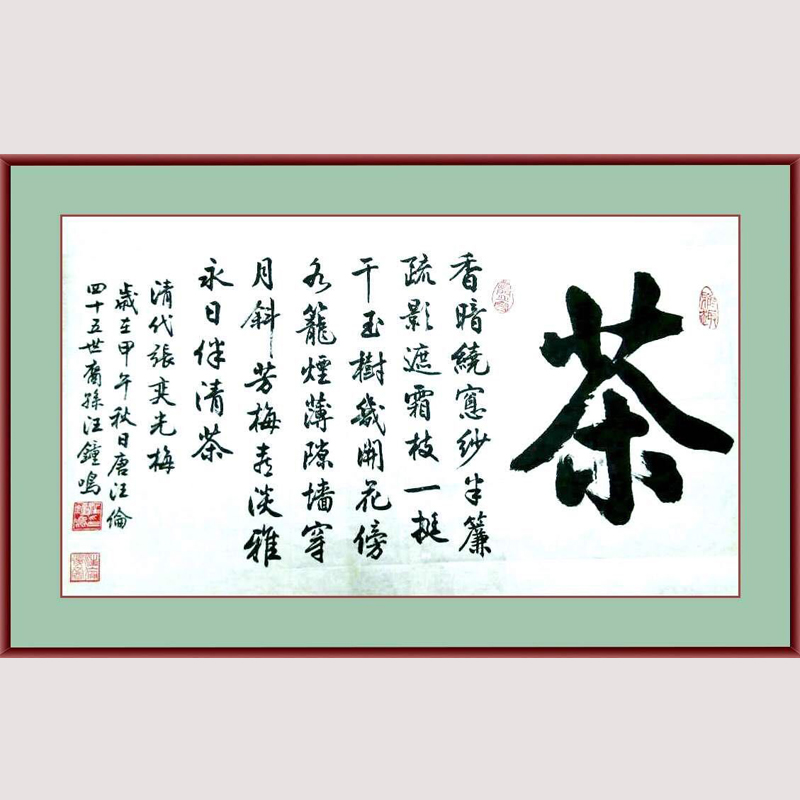 茶
香暗繞窓紗半簾
疏影遮霜枝一挺
干玉樹幾開花傍
水籠煙薄隙墙穿
月斜芳梅喜淡雅
永日伴清茶
清代張奕光梅
歲在甲午秋日唐汪倫
四十五世裔孫汪鐘鳴